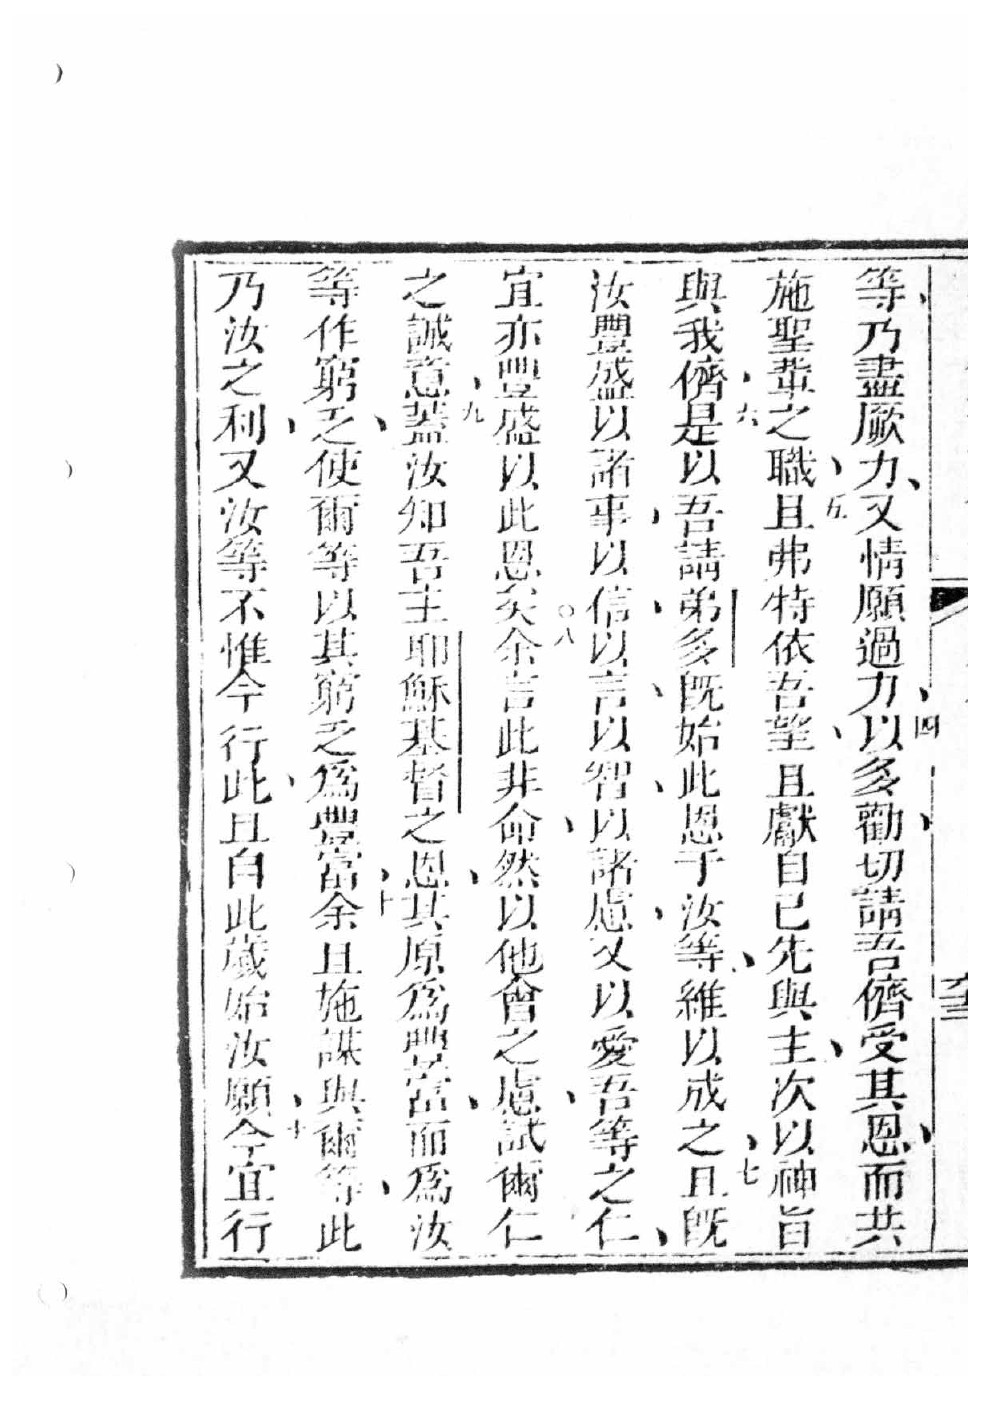 等、乃盡厥力、又情願過力、四以多勸、切請吾儕受其恩、而共
施聖輩之職、五且弗特依吾望、且獻自己先與主、次以神旨
與我儕、六是以吾請弟多既始此恩于汝等、維以成之、七且既
汝豐盛以諸事、以信、以言、以智、以諸慮、又以愛吾等之仁、
宜亦豐盛以此恩矣。八余言此非命、然以他會之慮、試爾仁
之誠意、九蓋汝知吾主耶穌基督之恩、其原為豐富、而為汝
等作窮乏、使爾等以其窮乏為豐富、十余且施謀與爾等、此
乃汝之利、又汝等不惟今行此、且自此歲始汝願、十今宜行